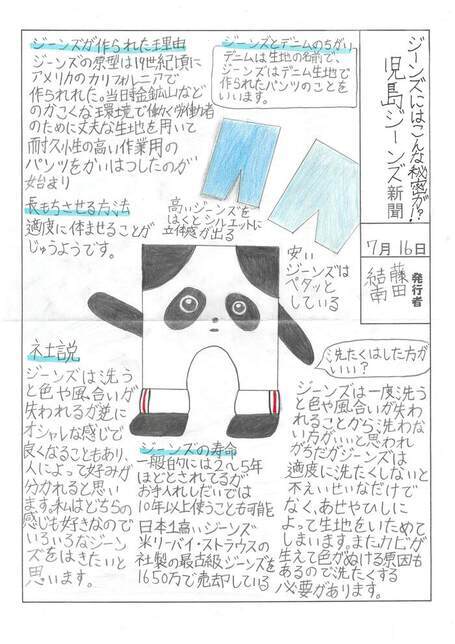 ジーンズにはこんな秘密が!?
児島ジーンズ新聞
7月16日
発行者
藤田
結南
ジーンズが作られた理由
ジーンズの原型は19世紀頃に
アメリカのカリフォルニアで
作られれた。当時金鉱山など
のかこくな環境で働く労働者
のために丈夫な生地を用いて
耐久小生の高い作業用の
パンツをかいはつしたのが
始より
ジーンズとデニムのちがい
デニムは生地の名前で、
ジーンズはデニム生地で
作られたパンツのことを
いいます。
長もちさせる方法
適度に休ませることが
じゅうようです。
高いジーンズを
はくとシルエットに
立体感が出る
安い
ジーンズは
ペタッと
している
洗たくはした方が
いい?
ジーンズは一度洗う
と色や風合いが失わ
れることから、洗わな
い方がいいと思われ
がちだがジーンズは
適度に洗たくしないと
不えいせいなだけで
なく、あせやひしに
よって生地をいためて
しまいます。またカビが
生えて色がぬける原因も
あるので洗たくする
必要があります。
社説
ジーンズは洗う
と色や風合いが
失われるが逆に
オシャレな感じで
良くなることもあり、
人によって好みが
分かれると思い
ます。私はどちらの
感じも好きなので
いろいろなジーン
ズをはきたいと
思います。
ジーンズの寿命
一般的には2～5年
ほどとされてるが
お手入れしだいでは
10年以上使うことも可能
日本1高いジーンズ
米リーバイ・ストラウスの
社製の最古級ジーンズを
1650万で売却している